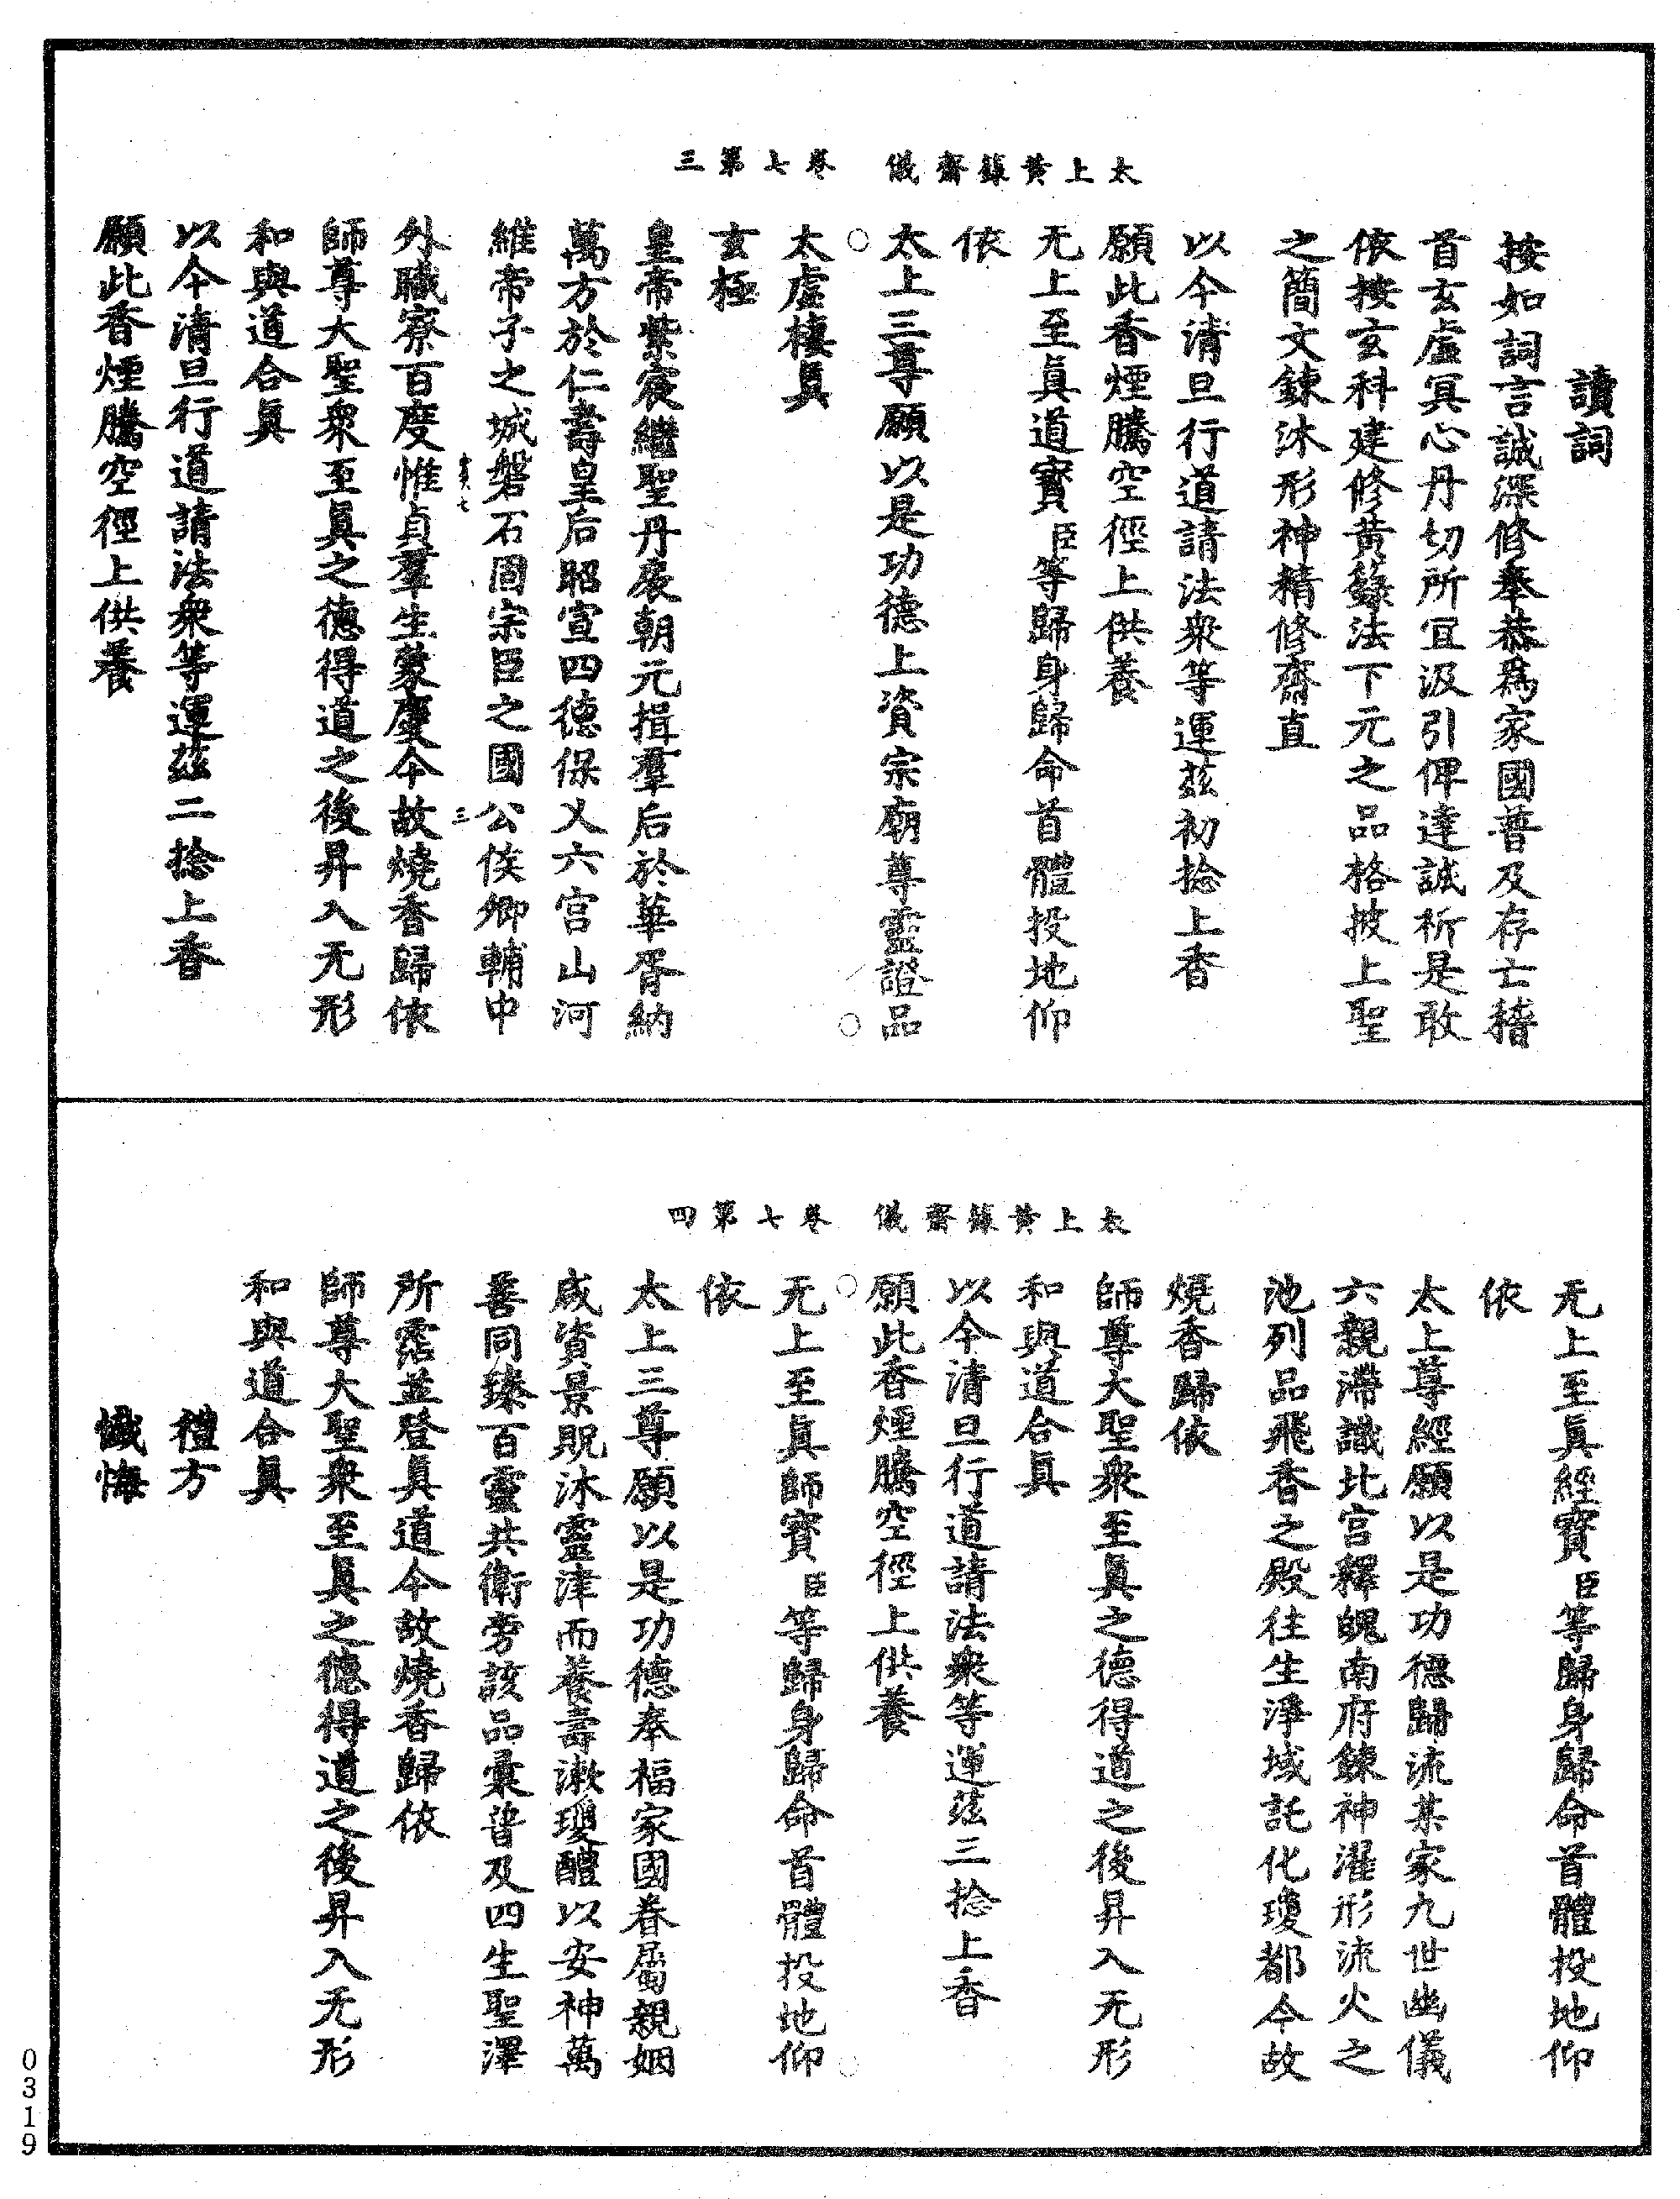 太上黃籙齋儀 卷七第三
讀詞
按如詞言誠深修奉恭爲家國普及存亡稽
首玄虛冥心丹切所冝汲引俾達誠祈是敢
依按玄科建修黃籙法下元之品格披上聖
之簡文鍊沐形神精修齋直
以今清旦行道請法衆等運茲初捻上香
願此香煙騰空徑上供養
无上至真道寳臣等歸身歸命首體投地仰
依
太上三尊願以是功德上資宗廟尊靈證品
太虛棲真
玄極
皇帝紫宸繼聖丹扆朝元揖羣后於華胥納
萬方於仁壽皇后昭宣四德保乂六宫山河
維帝子之城磐石固宗臣之國公侯卿輔中
外職寮百度惟貞羣生蒙慶今故燒香歸依
師尊大聖衆至真之德得道之後昇入无形
和與道合真
以今清旦行道請法衆等運茲二捻上香
願此香煙騰空徑上供養
太上黃籙齋儀 卷七第四
无上至真經寳臣等歸身歸命首體投地仰
依
太上尊經願以是功德歸流某家九世幽儀
六親滯識北宫釋魄南府鍊神濯形流火之
池列品飛香之殿往生淨域託化瓊都今故
燒香歸依
師尊大聖衆至真之德得道之後昇入无形
和與道合真
以今清旦行道請法衆等運茲三捻上香
願此香煙騰空徑上供養
无上至真師寳臣等歸身歸命首體投地仰
依
太上三尊願以是功德奉福家國眷屬親姻
咸資景貺沐靈津而養壽漱瓊醴以安神萬
善同臻百靈共衛旁該品彙普及四生聖澤
所霑並登真道今故燒香歸依
師尊大聖衆至真之德得道之後昇入无形
和與道合真
禮方
懺悔
0319